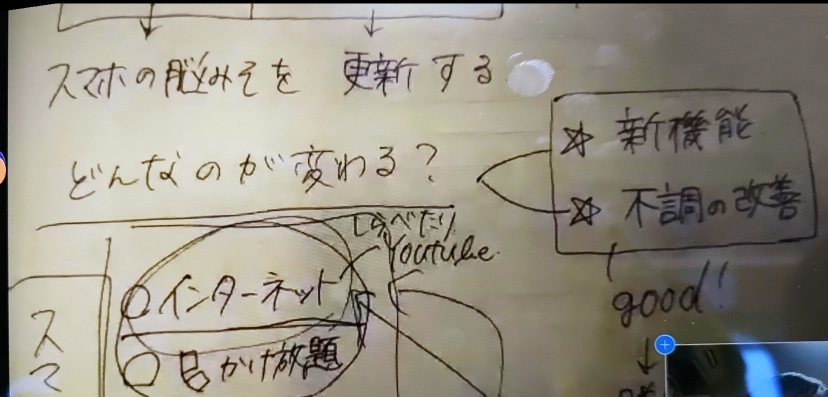 スマホの脳みそを 更新する
どんなのが変わる?
☆ 新機能
☆ 不調の改善
good!
しらべたり
Youtube
○ インターネット
かけ放題
スマ